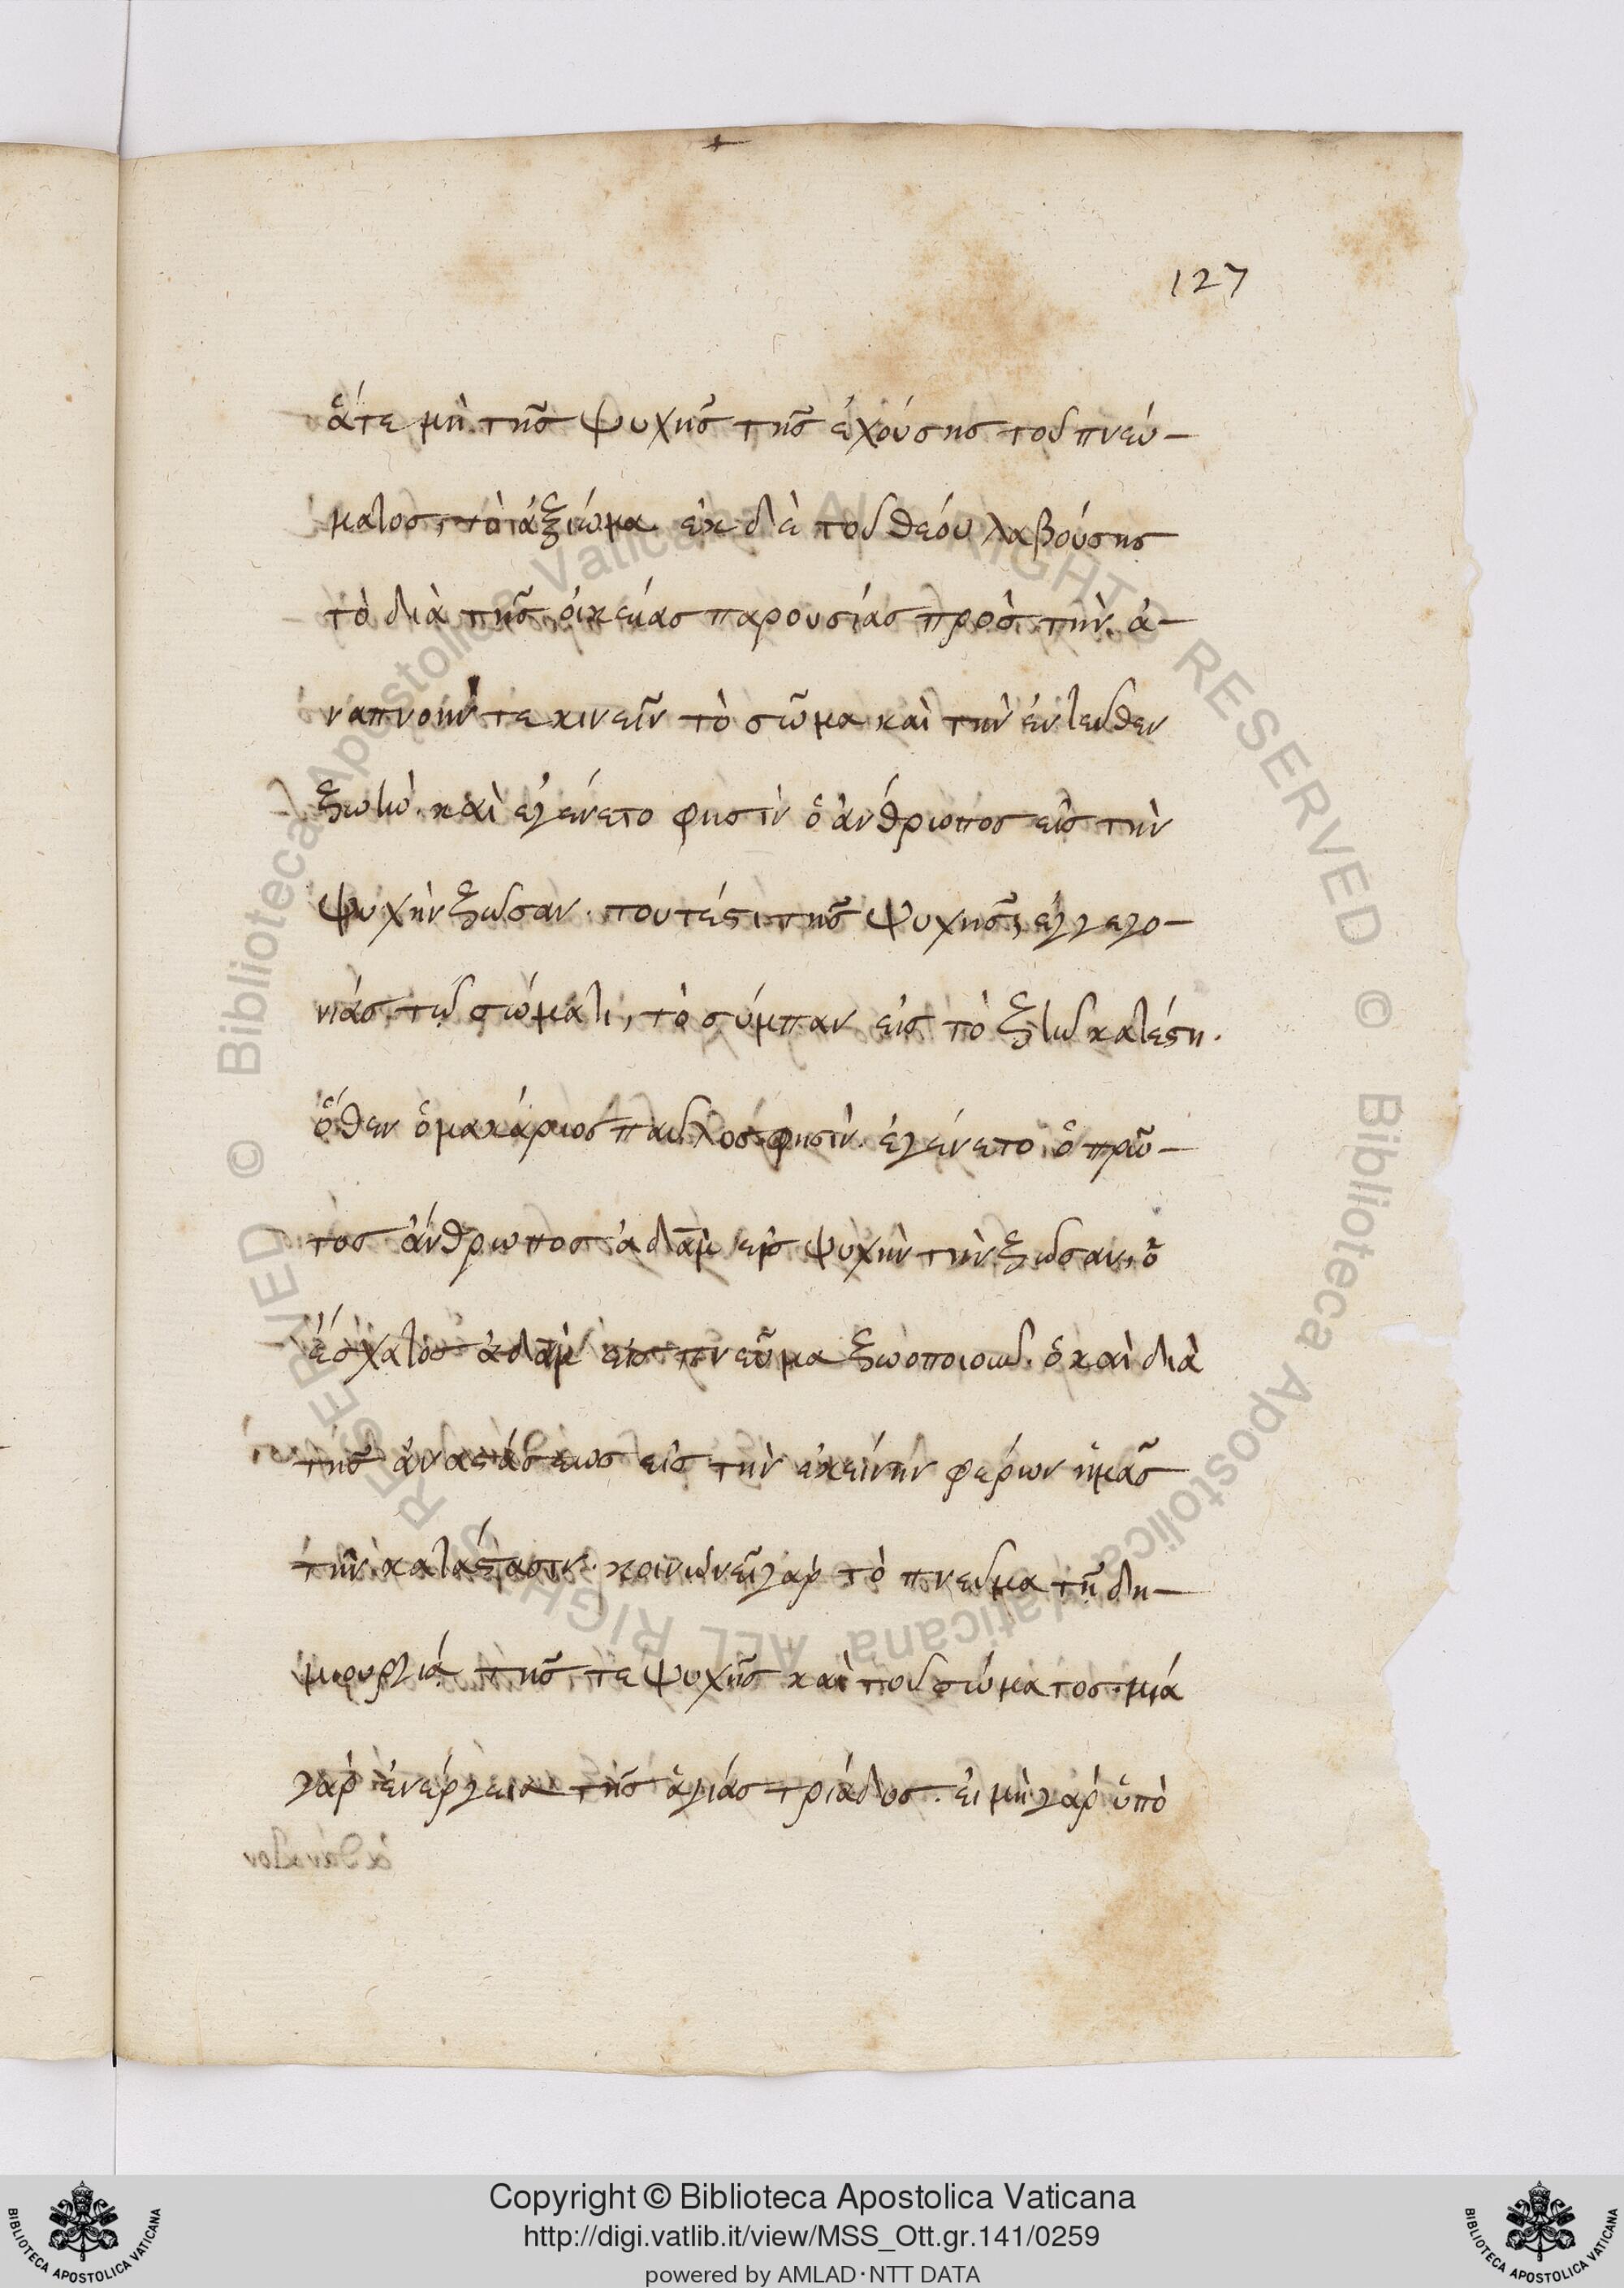 127
ἅτε μὴ τῆς ψυχῆς τῆς ἐχούσης τοῦ πνεύ-
ματος, τὸ ἀξίωμα ἐκ δὲ τοῦ θεόυ λαβούσης
τὸ διὰ τῆς οἰκείας παρουσίας πρὸς τὴν ἀ-
ναπνοήν τε κινεῖν τὸ σῶμα καὶ τὴν ἐντεῦθεν
ζωὴν. καὶ ἐγένετο φησὶν ὁ ἄνθρωπος εἰς τὴν
ψυχὴν ζῶσαν. τουτέστι τῆς ψυχῆς, ἐγγεγο-
νίας τῷ σώματι, τὸ σύμπαν εἰς τὸ ζῆν κατέστη.
ὅθεν ὁ μακάριος παῦλος φησὶν. ἐγένετο ὁ πρῶ-
τος ἄνθρωπος ἀδὰμ εἰς ψυχὴν τὴν ζῶσαν, ὁ
ἔσχατος ἀδὰμ εἰς πνεῦμα ζωοποιοῦν. ὁ καὶ διὰ
τῆς ἀναστάσεως εἰς τὴν ἐκείνην φέρων ἡμᾶς
τὴν κατάστασιν. κοινωνεῖ γὰρ τὸ πνεῦμα τῇ δη-
μιουργίᾳ τῆς τε ψυχῆς καὶ τοῦ σώματος. μιά
γὰρ ἐνέργεια τῆς ἁγιάς τριάδος. εἰ μὴ γὰρ ὑπὸ
Copyright © Biblioteca Apostolica Vaticana
http://digi.vatlib.it/view/MSS_Ott.gr.141/0259
powered by AMLAD·NTT DATA
BIBLIOTECA APOSTOLICA VATICANA
BIBLIOTECA APOSTOLICA VATICANA
© Biblioteca Apostolica Vaticana ALL RIGHTS RESERVED © Biblioteca Apostolica Vaticana ALL RIGHTS RESERVED